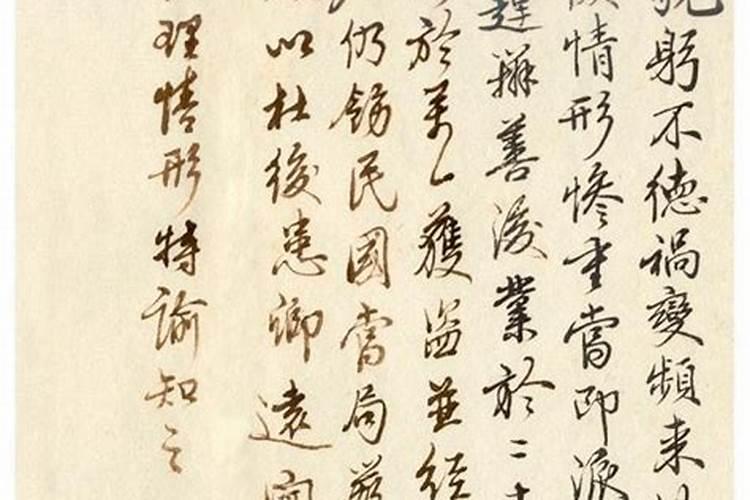 躬不德禍變頻来
情形慘重當即派
趕辦善後業於二十
於萬一獲盜並經
仍飭民國當局嚴
以杜後患卿遠
理情形特諭知之